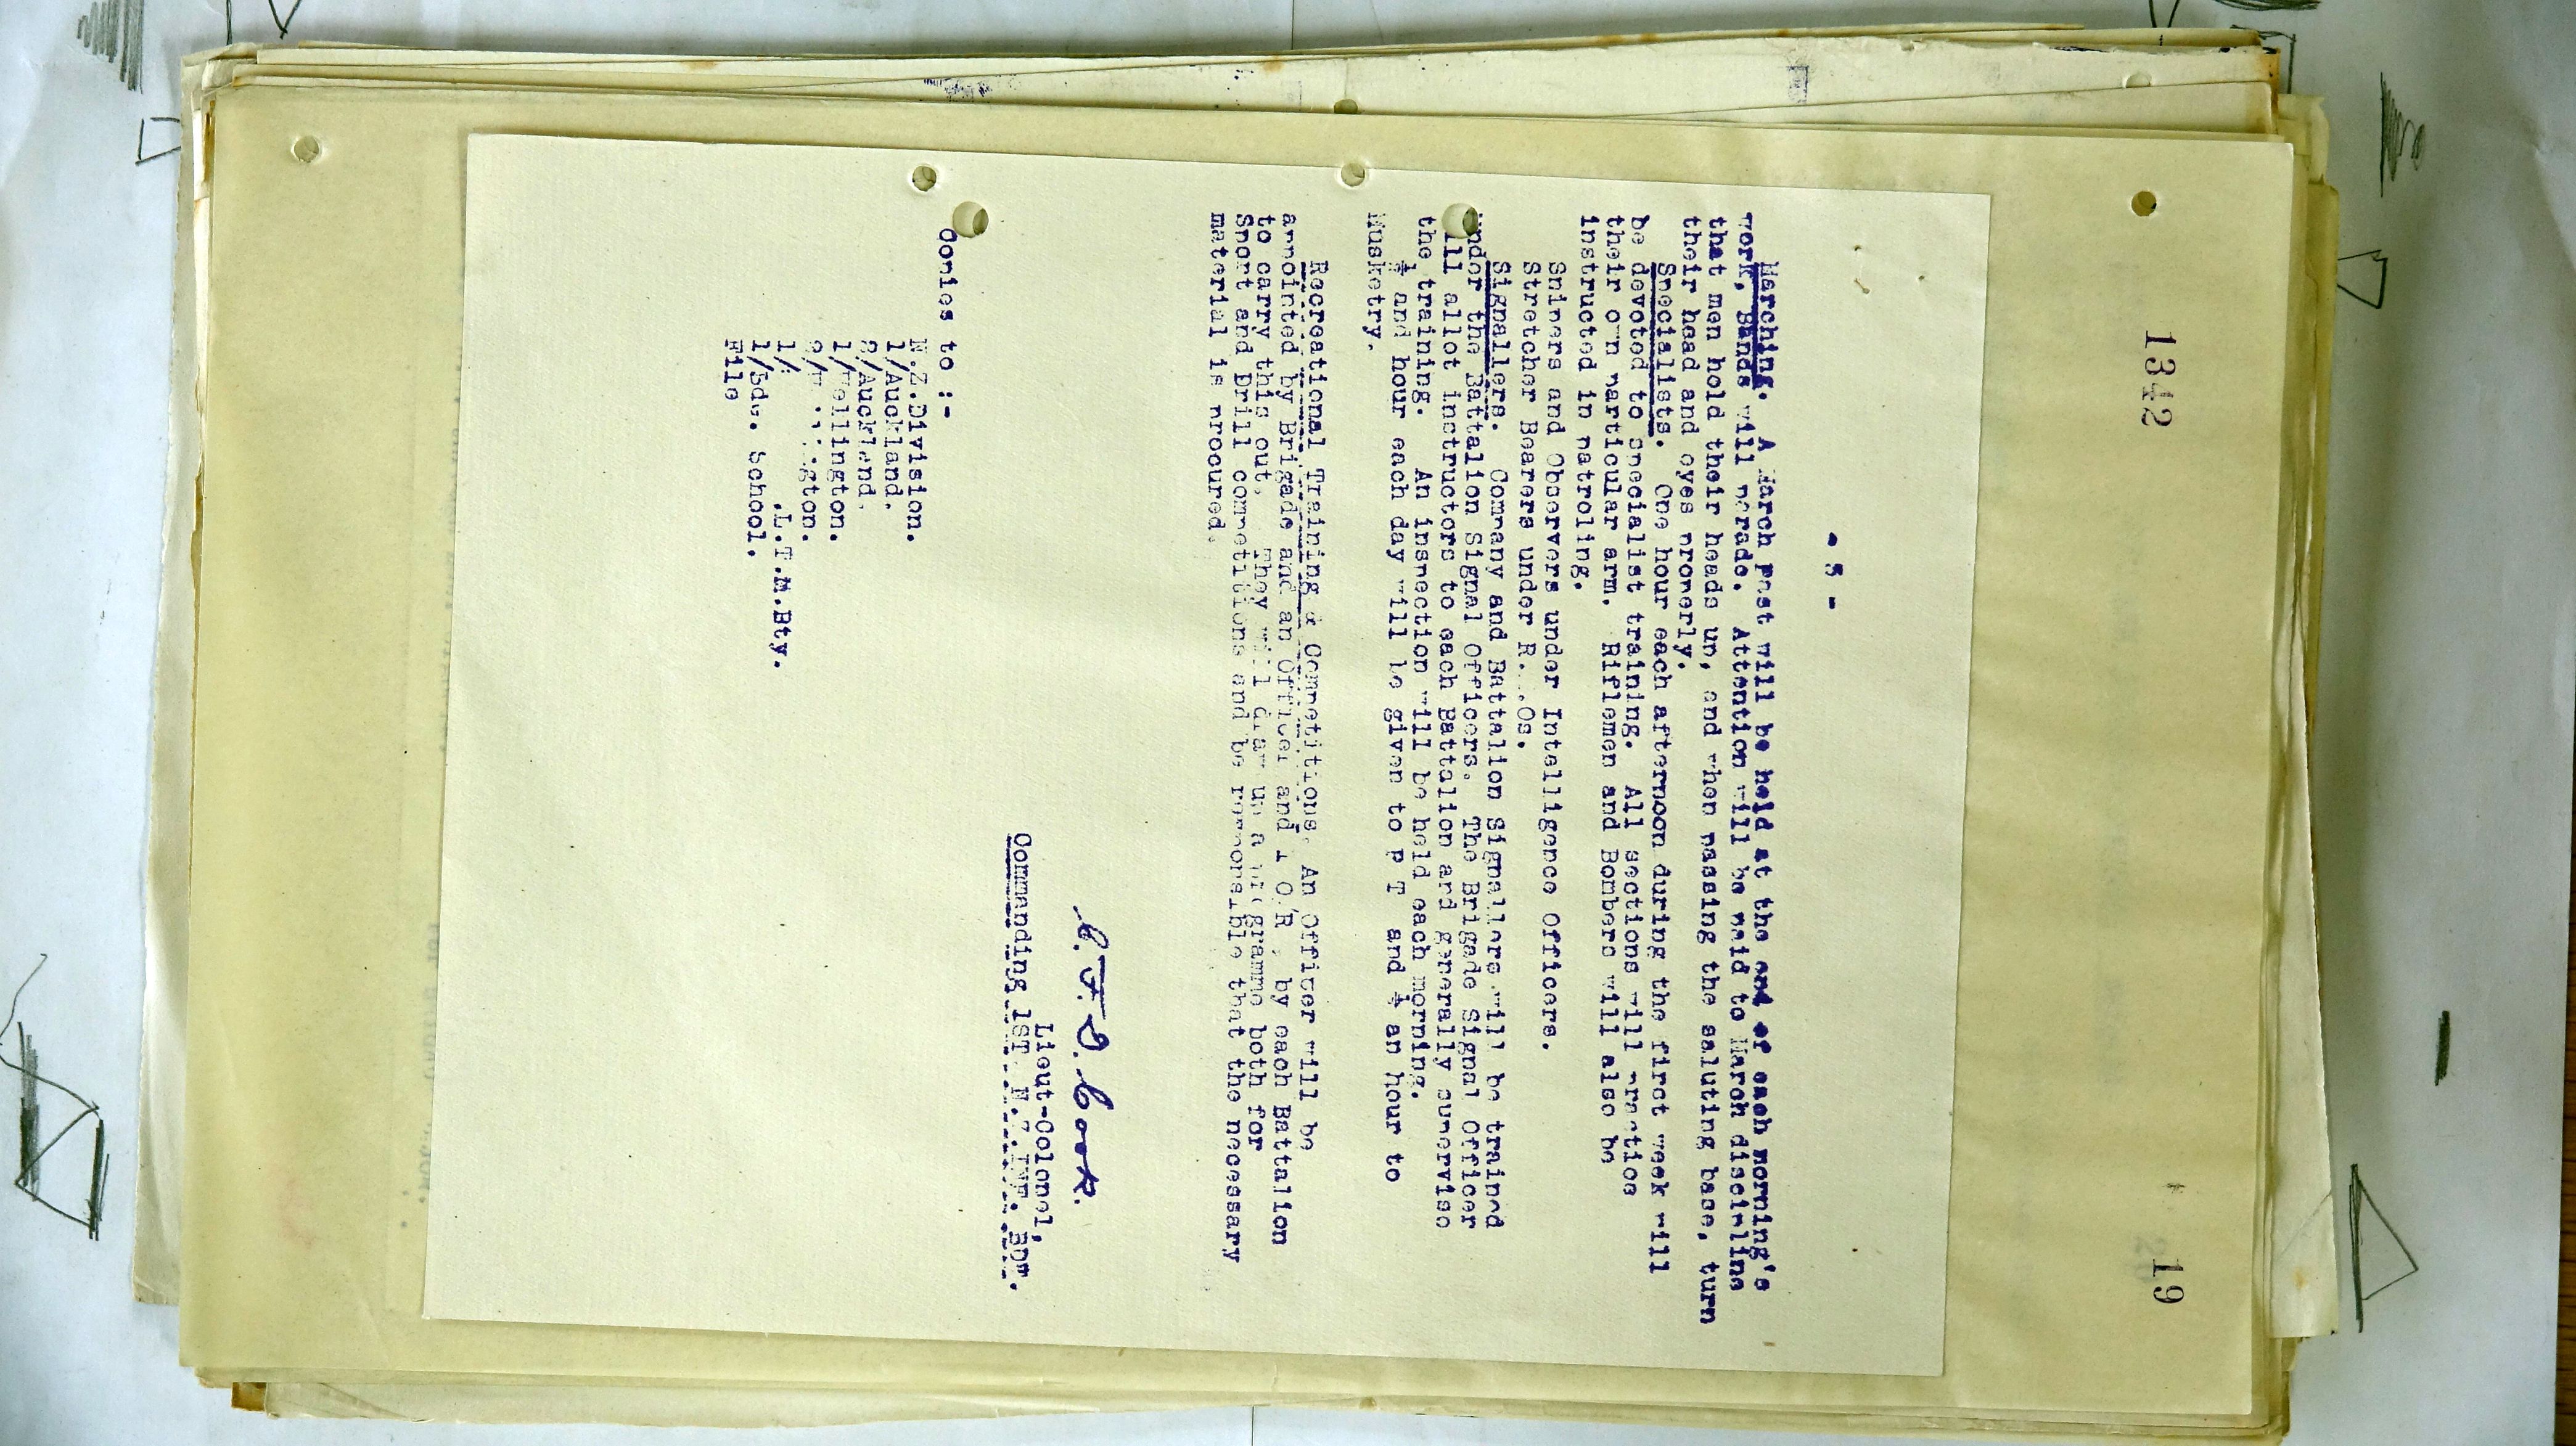 1342
19
- 5 -
Marching. A March past will be held at the end of each morning's
work, Bands will parade. Attention will be paid to March discipline
that men hold their heads up, and when passing the saluting base, turn
their head and eyes properly.
Specialists. One hour each afternoon during the first week will
be devoted to specialist training. All sections will practice
their own particular arm. Riflemen and Bombers will also be
instructed in patroling.
Snipers and Observers under Intelligence Officers.
Stretcher Bearers under
Signallers. Company and Battalion Signallers will be trained
under the Battalion Signal Officers. The Brigade Signal Officer
will allot instructors to each Battalion and generally supervise
the training. An inspection will be held each morning.
and hour each day will be given to P T and an hour to
Musketry.
Recreational Training & Competitions. An Officer will be
appointed by Brigade and an Officer and 1 O.R. by each Battalion
to carry this out. They will draw up a programme both for
Sport and Drill competitions and be responsible that the necessary
material is procured.
C. F. D. Cook.
Lieut-Colonel,
Commanding 1ST N.Z.INF. BDE.
Copies to :-
N.Z.Division.
1/Auckland.
2/Auckland.
1/Wellington.
2/Wellington.
1/ L.T.M.Bty.
1/Bde. School.
File